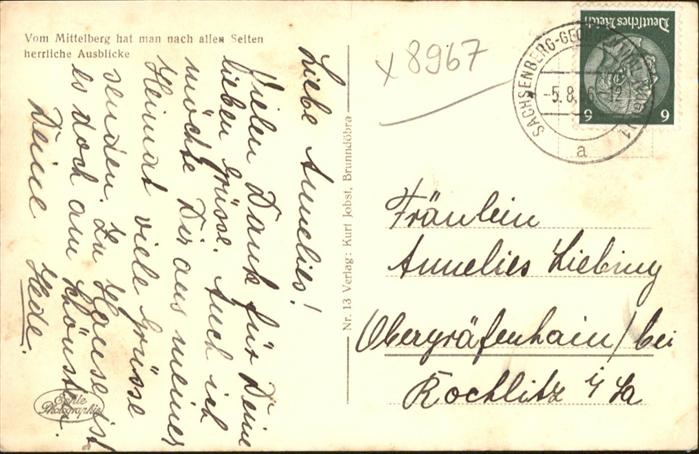 Vom Mittelberg hat man nach allen Seiten
herrliche Ausblicke
Liebe Annelies!
Vielen Dank für Deine
lieben Grüsse. Auch ich
möchte Dir aus meiner
Heimat viele Grüsse
senden. Zu Hause ist
es doch am schönsten.
Deine Hede.
Echte
Photographie
Nr. 13 Verlag: Kurt Jobst, Brunndöbra
x 8967
Deutsches Reich
6 6
SACHSENBERG-GEORGENTHAL
-5.8.
a
Fräulein
Annelies Liebing
Obergräfenhain / bei
Rochlitz i/Sa